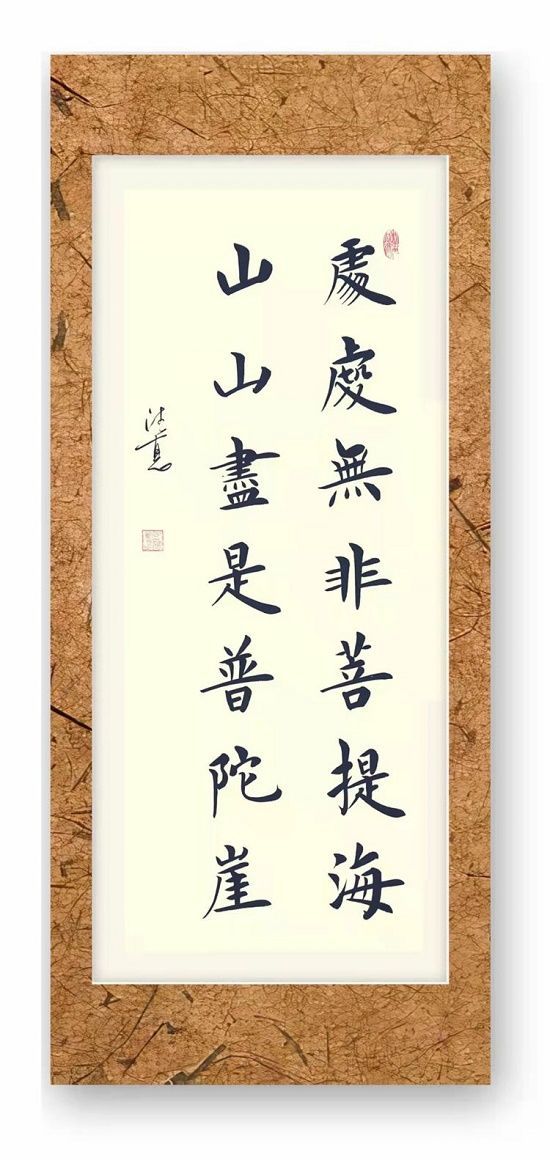 處處無非菩提海
山山盡是普陀崖